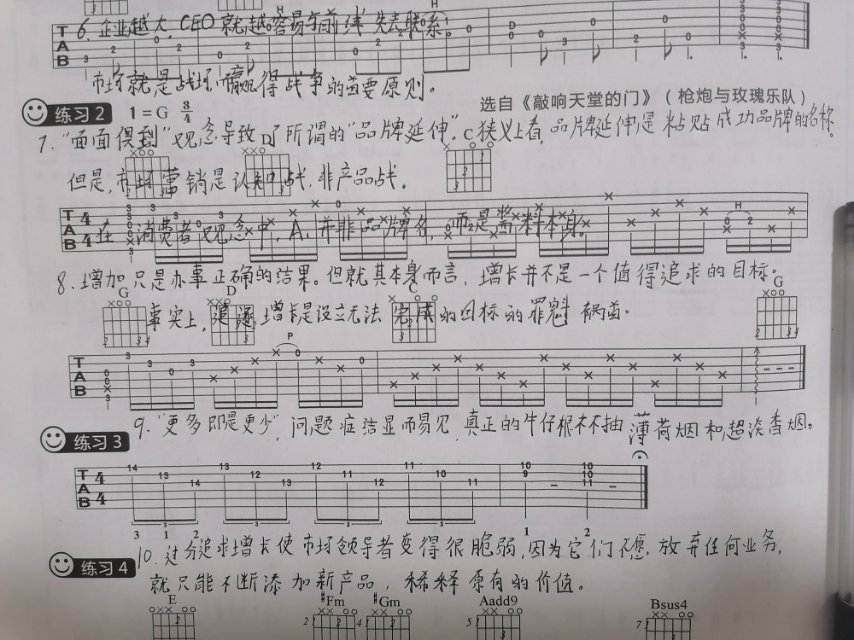 6. 企业越大, CEO 就越容易与前线失去联系。
市场就是战场, 而赢得战争的首要原则。
练习 2 1 = G 3/4 选自《敲响天堂的门》（枪炮与玫瑰乐队）
7. "面面俱到"观念导致了所谓的"品牌延伸"。C狭义上看, 品牌延伸是粘贴成功品牌的名称。
但是, 市场营销是认知之战, 非产品战。
T A B 4 4
在消费者观念中, A, 并非品牌名, 而是酱料本身。
8. 增加只是办事正确的结果。但就其本身而言, 增长并不是一个值得追求的目标。
G D C G
事实上, 追逐增长是设立无法完成的目标的罪魁祸首。
T A B
9. "更多即是更少", 问题症结显而易见, 真正的牛仔根本不抽薄荷烟和超淡香烟。
练习 3
T A B 4 4
14 13 12 13 12 14 12 11 13 12 11 12 11 10 11 10 9 10 10 11
3 1 2 1 2
10. 过分追求增长使市场领导者变得很脆弱, 因为它们不愿放弃任何业务,
练习 4
就只能不断添加新产品, 稀释原有的价值。
E #Fm #Gm Aadd9 Bsus4
2 4 5 7